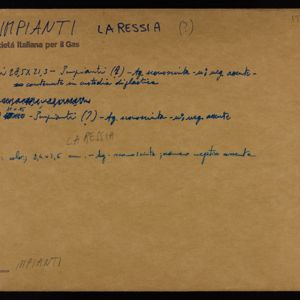 IMPIANTI LA RESSIA (?)
cietà Italiana per il Gas
23,5 X 21,3 - Impianti (?) - Ag. sconosciuta - neg. assente -
contenute in custodia di plastica
- Impianti (?) - Ag. sconosciuta - neg. assente
LA RESSIA
color, cm. - Ag. sconosciuta, numero negativo assente
IMPIANTI